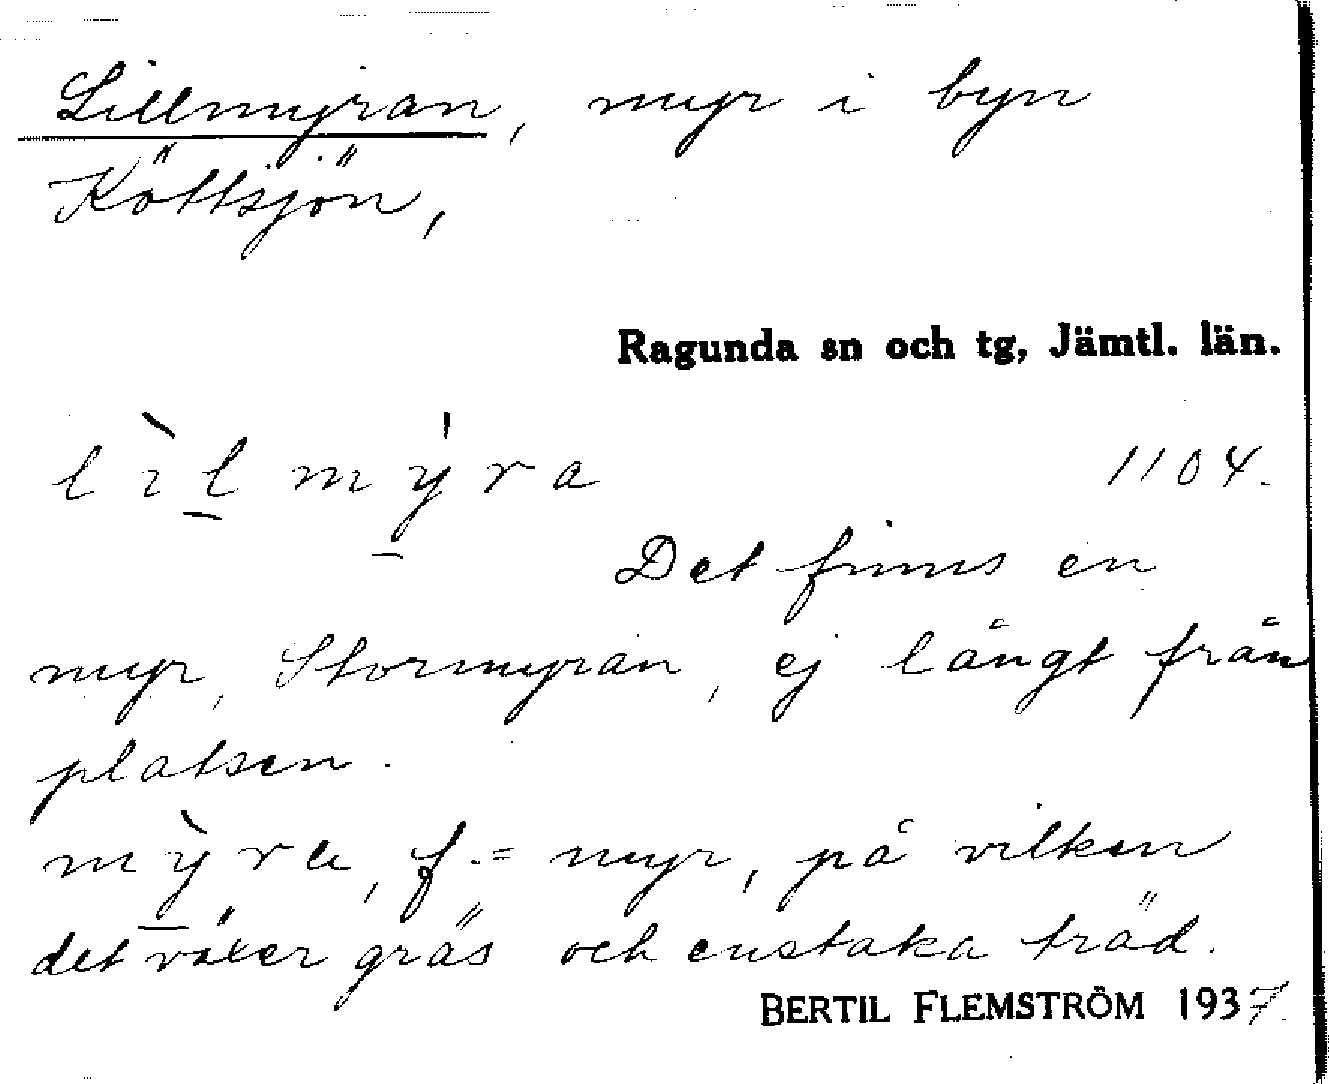 Lillmyran, myr i byn
Köttsjön,
Ragunda sn och tg, Jämtl. län.
lìl mýra 1104.
Det finns en
myr, Stormyran, ej långt från
platsen.
mỳra, f. = myr, på vilken
det växer gräs och enstaka träd.
BERTIL FLEMSTRÖM 1937